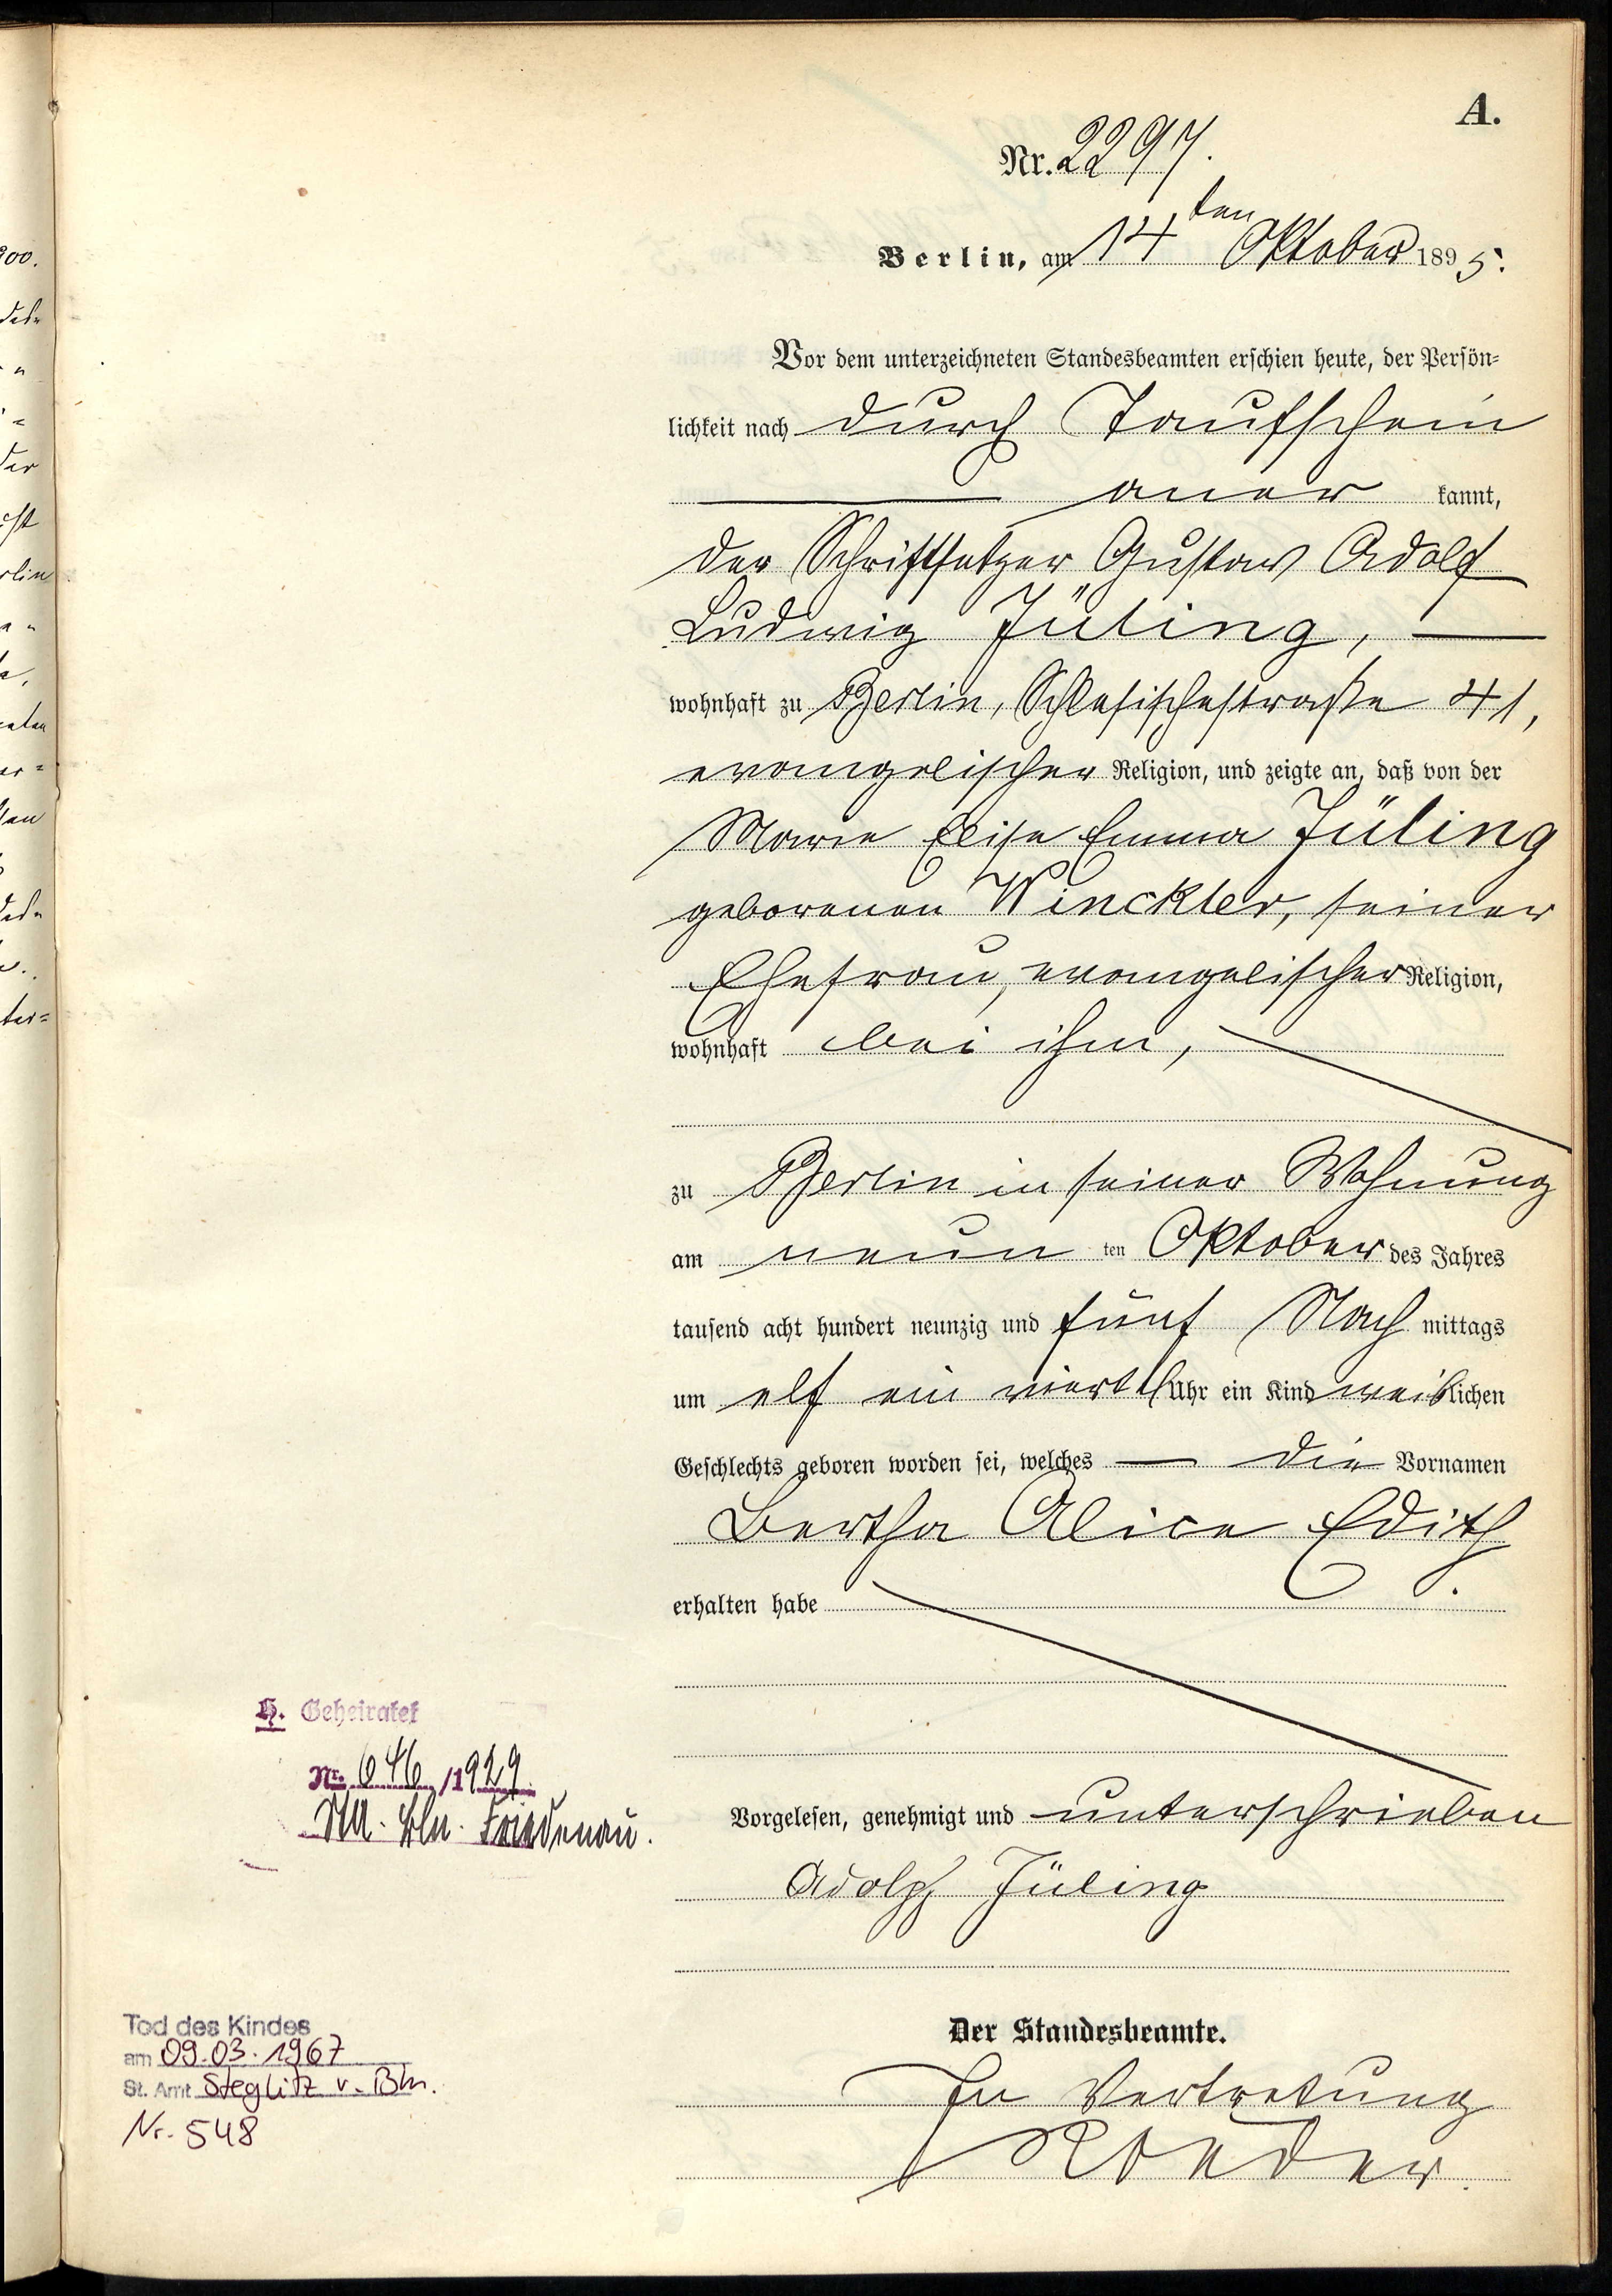 A.
Nr. 2297.
Berlin, am 14ten Oktober 1895.
Vor dem unterzeichneten Standesbeamten erschien heute, der Persön-
lichkeit nach durch Taufschein
aner kannt,
der Schriftsetzer Gustav Adolf
Ludwig Jüling,
wohnhaft zu Berlin, Schlesischestraße 41,
evangelischer Religion, und zeigte an, daß von der
Marie Elise Emma Jüling
geborenen Winckler, seiner
Ehefrau, evangelischer Religion,
wohnhaft bei ihm,
zu Berlin in seiner Wohnung
am neun ten Oktober des Jahres
tausend acht hundert neunzig und fünf Nach mittags
um elf ein viertel Uhr ein Kind weiblichen
Geschlechts geboren worden sei, welches die Vornamen
Bertha Alice Edith
erhalten habe.
H. Geheiratet
Nr. 646/1929
StA. Bln. Friedenau.
Vorgelesen, genehmigt und unterschrieben
Adolf Jüling
Der Standesbeamte.
In Vertretung
Roeder.
Tod des Kindes
am 09.03.1967
St. Amt Steglitz v. Bln.
Nr. 548